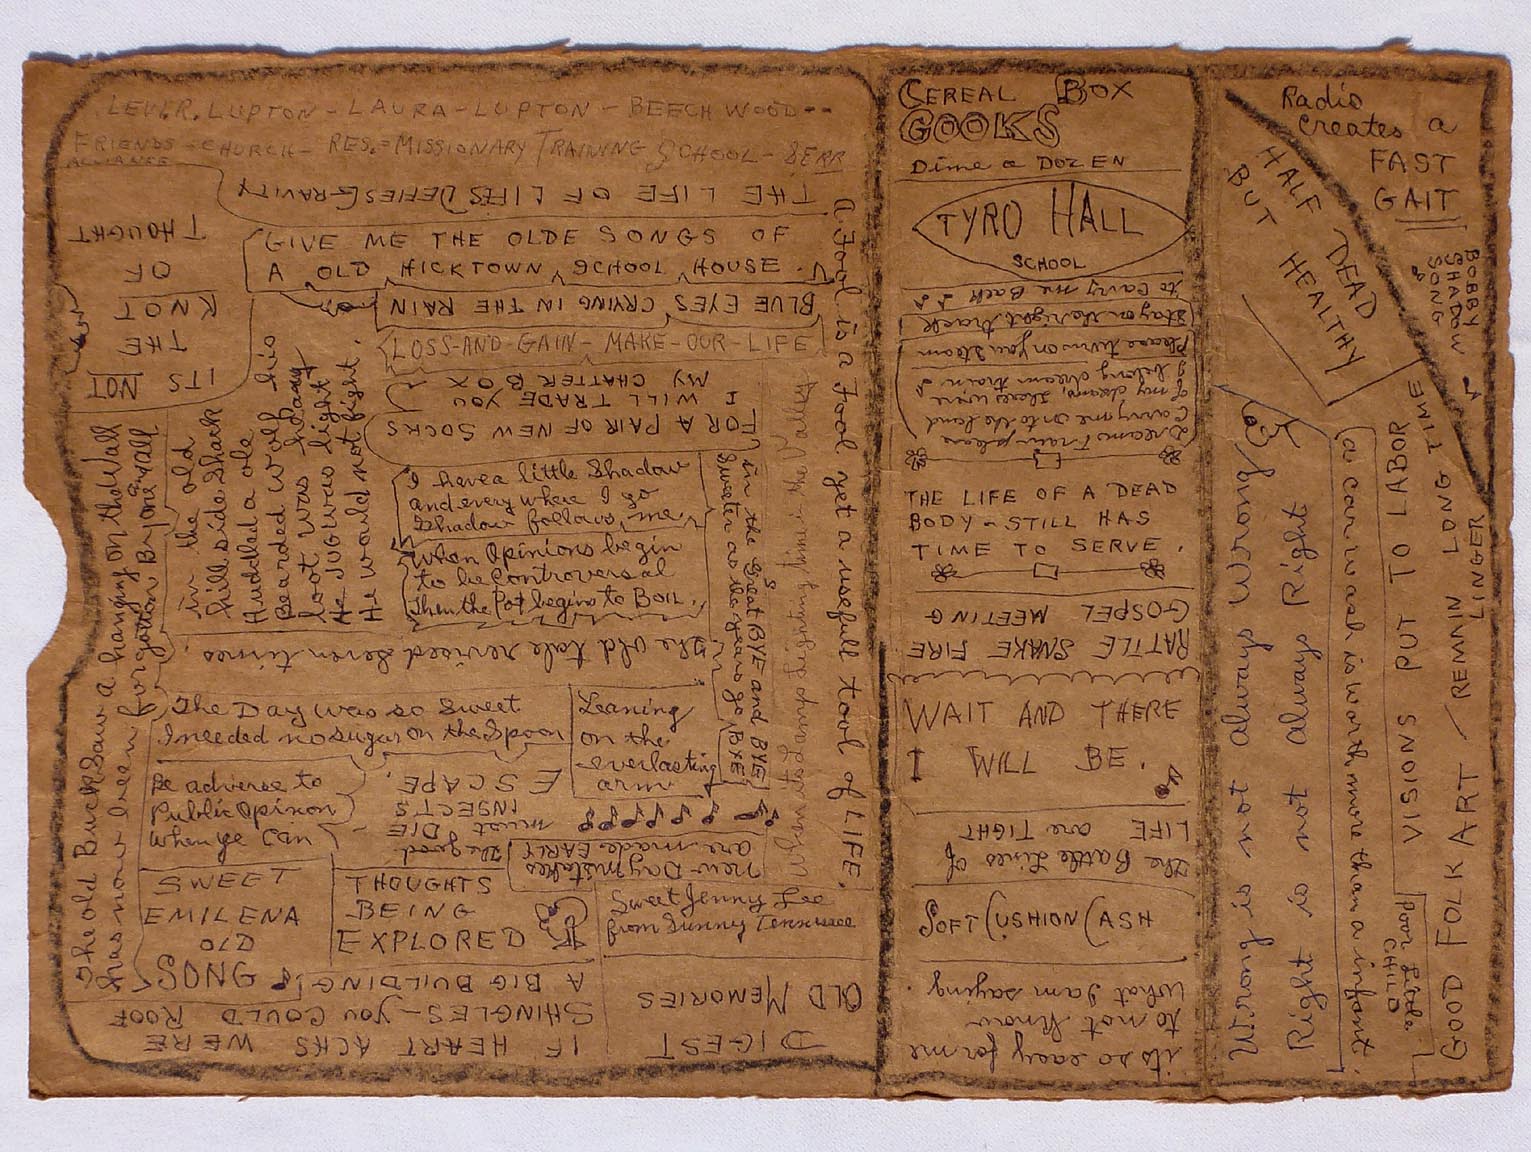 LEVER. LUPTON - LAURA - LUPTON - BEECH WOOD --
FRIENDS - CHURCH - RES. = MISSIONARY TRAINING SCHOOL - 
ALLIANCE
THE LIFE OF LIFES DEFIES GRAVITY
ITS NOT
THE
KNOT
OF
THOUGHT
GIVE ME THE OLDE SONGS OF
A OLD HICKTOWN SCHOOL HOUSE.
BLUE EYES CRYING IN THE RAIN
LOSS-AND-GAIN-MAKE-OUR-LIFE
FOR A PAIR OF NEW SOCKS
I WILL TRADE YOU
MY CHATTER BOX
I have a little Shadow
and every where I go
Shadow follows me
When Opinions begin
to be Controversal
then the Pot begins to BOIL.
in the old
hill side Shack
Huddled a ole
Bearded wolf his
loot was heavy
He JUG was light
He would not fight.
The old Buck Saw a hanging on the Wall
has now been forgotton By one an all
The old tale revised Seven times.
in the great BYE and BYE
Sweeter as the years go BYE
When its Lamp Lighting time in the Valley
a Fool is a Fool yet a usefull tool of LIFE.
The Day was so Sweet
I needed no sugar on the Spoon
Leaning
on the
everlasting
arm
Be adverse to
Public Opinion
when ye can
new Day mistakes
are made EARLY
the good
must DIE
INSECTS
ESCAPE.
SWEET
EMILENA
OLD
SONG
THOUGHTS
BEING
EXPLORED
Sweet Jenny Lee
from Sunny Tennessee
IF HEART ACKS WERE
SHINGLES - YOU COULD ROOF
A BIG BUILDING
DIGEST
OLD MEMORIES
CEREAL BOX
GOOKS
Dime a DOZEN
TYRO HALL
SCHOOL
Dreams Train please
Carry me onto the land
of my dreams, there with
I belong dream train
Please turn on you Steam
Stay on the right track
to Carry me Back
THE LIFE OF A DEAD
BODY - STILL HAS
TIME TO SERVE.
RATTLE SNAKE FIRE
GOSPEL MEETING
WAIT AND THERE
I WILL BE.
the Battle Lines of
LIFE are TIGHT
SOFT CUSHION CASH
its so easy for me
to not Know
What I am saying.
Radio
Creates a
FAST
GAIT
HALF DEAD
BUT HEALTHY
BOBBY
SHADOW
SONG
Wrong is not always Wrong
Right is not always Right
a car wash is worth more than a infont.
Poor Little
CHILD
VISIONS PUT TO LABOR
GOOD FOLK ART / REMAIN LONG TIME
LINGER